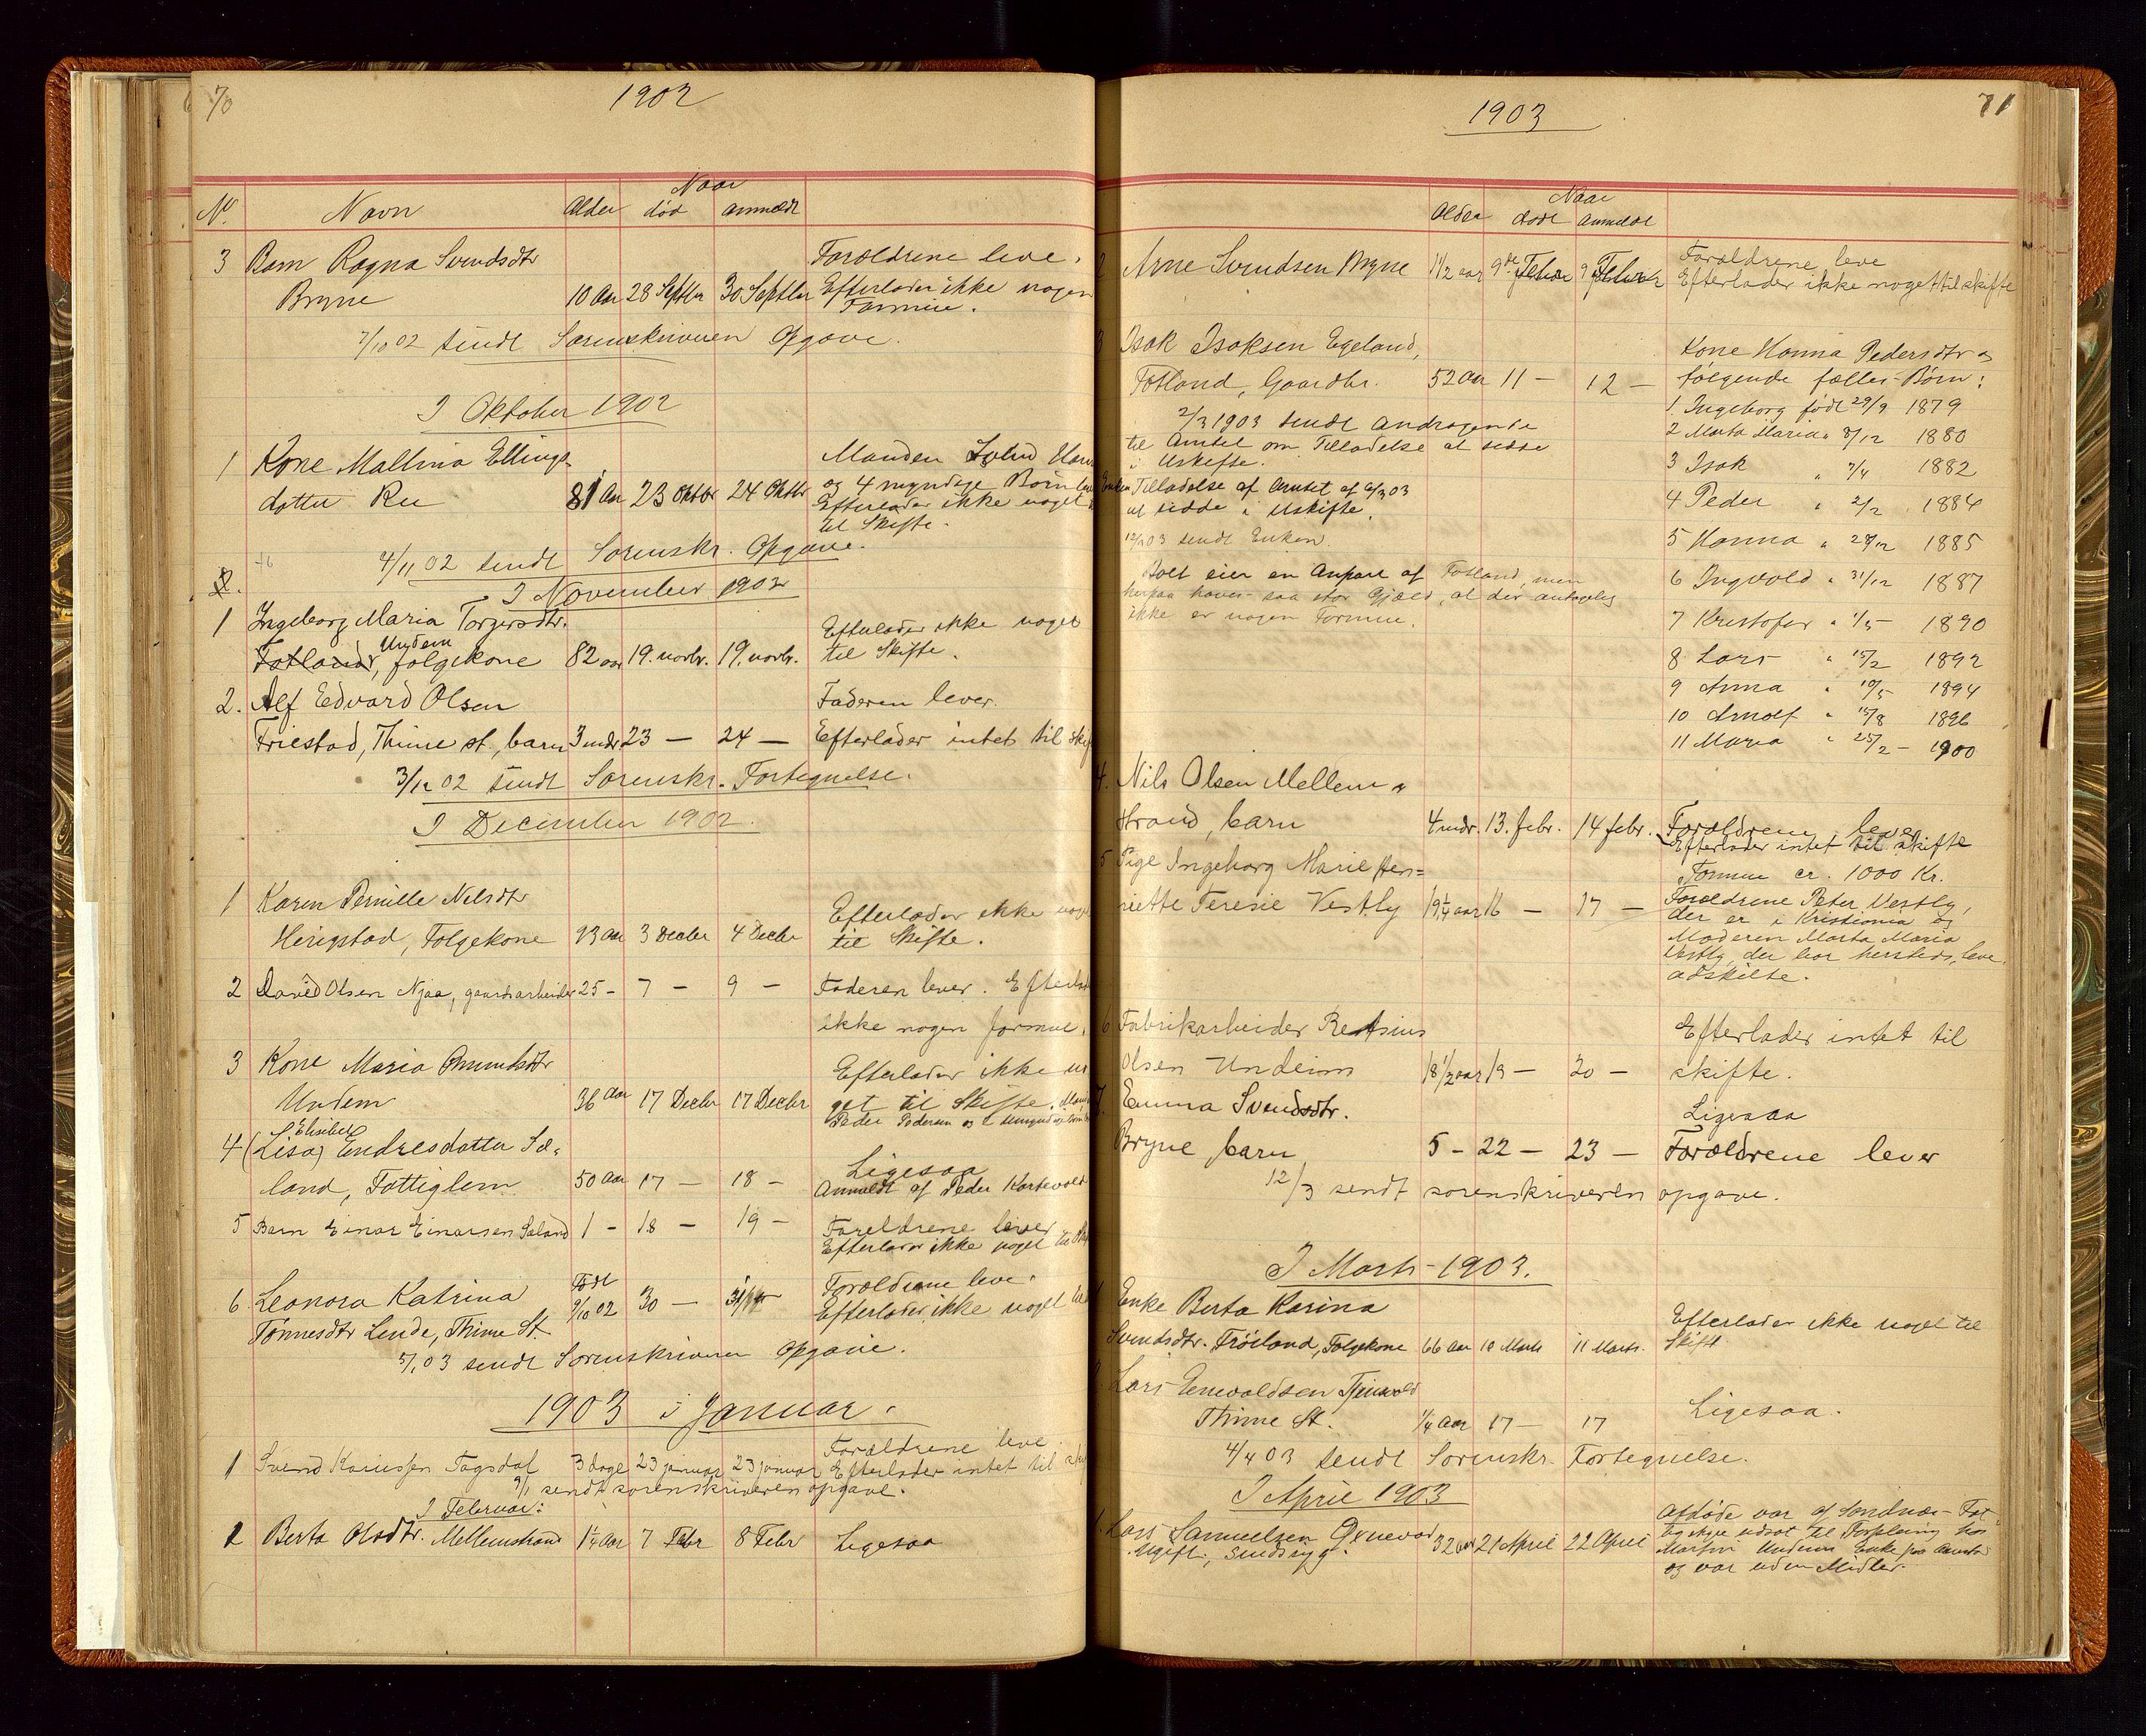 70
1902
No.
Navn
Alder
Naar
død
anmeldt
3 Barn Ragna Svendsdtr
Bryne
10 Aar 28 Septbr 30 Septbr
Forældrene leve.
Efterlader ikke nogen
Formue.
7/10 02 sendt Sorenskriveren Opgave.
I Oktober 1902
1 Kone Mallina Ellings
datter Re
81 Aar 23 Oktbr 24 Oktbr
Manden
og 4 myndige Børn
Efterlader ikke noget
til Skifte.
4/11 02 sendt Sorenskr. Opgave.
2.
I November 1902
1 Ingeborg Maria Torgersdtr.
Undem
Fotland, folgekone 82 aar 19. novbr. 19. novbr.
Efterlader ikke noget
til Skifte.
2. Alf Edvard Olsen
Friestad, Thime st., barn 3 mdr 23 — 24 —
Faderen lever.
Efterlader intet til
3/12 02 sendt Sorenskr. Fortegnelse.
I December 1902.
1 Karen Pernille Nilsdtr
Herigstad, Folgekone 93 Aar 3 Decbr 4 Decbr
Efterlader ikke
til Skifte.
2 David Olsen Njaa, gaardsarbeider 25 — 7 — 9 —
Faderen lever.
ikke nogen formue.
3 Kone Maria Omundsdtr
Undem
36 Aar 17 Decbr 17 Decbr
Efterlader ikke no
get til Skifte.
Peder Pedersen og
4 (Lisa) Endresdatter Sæ-
land, Fattiglem 50 Aar 17 — 18 —
Ligesaa
Anmeldt af Peder
5 Barn Einar Einarsen Saland 1 — 18 — 19 —
Foreldrene lever
Efterlader ikke noget
6 Leonora Katrina
Tønnesdtr Lende, Thime St.
Født
9/10 02 30 —
Foreldrene leve.
Efterlader ikke noget
5/1 03 sendt Sorenskriveren Opgave.
1903 i Januar.
1 Svend Tagsdal 3 dage 23 januar 23 januar
Forældrene leve
Efterlader intet til
sendt sorenskriveren opgave.
I Februar:
1 Berta Olsdtr. Mellemstrand 1 1/4 Aar 7 Febr 8 Febr Ligesaa
71
1903
Alder
Naar
dødt
anmeldt
2 Arne Svendsen Bryne 1 1/2 aar 9de Febr 9 Febr
Forældrene leve
Efterlader ikke noget til skifte
3 Isak Isaksen Egeland,
Fotland, Gaardbr. 52 Aar 11 — 12 —
Kone Hanna Pedersdtr og
følgende fælles-Børn:
2/3 1903 sendt Andragende
til Amtet om Tilladelse at sidde
i Uskifte.
Enken Tilladelse af Amtet af 6/3 03
at sidde i Uskifte.
12/3 03 sendt Enken.
Boet eier en Anpart af Fotland, men
herpaa haves saa stor Gjæld, at der antagelig
ikke er nogen Formue.
1. Ingeborg født 29/9 1879
2 Marta Maria " 8/12 1880
3 Isak " 7/4 1882
4 Peder " 2/2 1884
5 Hanna " 28/12 1885
6 Ingvald " 31/12 1887
7 Kristofer " 1/5 1890
8 Lars " 15/2 1892
9 Anna " 10/5 1894
10 Arnolf " 15/8 1896
11 Maria " 25/2 — 1900
4. Nils Olsen Mellem-
strand, barn 4 mdr. 13. febr. 14 febr.
Forældrene leve
Efterlader intet til skifte
5 Pige Ingeborg Marie Hen=
riette Teresie Vestly 19 1/4 aar 16 — 17 —
Formue cr. 1000 Kr.
Forældrene Peter Vestly,
der er i Kristiania og
Moderen Marta Maria
Vestly, der bor hersteds, leve
adskilte.
6 Fabrikarbeider
Olsen Undeim 18 1/2 aar 19 — 20 —
Efterlader intet til
skifte.
7. Emma Svendsdtr.
Bryne, barn 5 — 22 — 23 —
Ligesaa
Forældrene lever
12/3 sendt sorenskriveren opgave.
I Marts 1903.
1 Enke Berta Karina
Svendsdtr. Frøiland, Folgekone 66 Aar 10 Marts 11 Marts.
Efterlader ikke noget til
Skift
2. Lars Enevoldsen
Thime St. 1/4 Aar 17 — 17
Ligesaa.
4/4 03 sendt Sorenskr. Fortegnelse.
I April 1903
1. Lars Samuelsen
Ugift, sindssyg. 32 aar 21 April 22 April
Afdøde var af
udsat til Forpleining hos
Martin Undem
og var uden Midler.